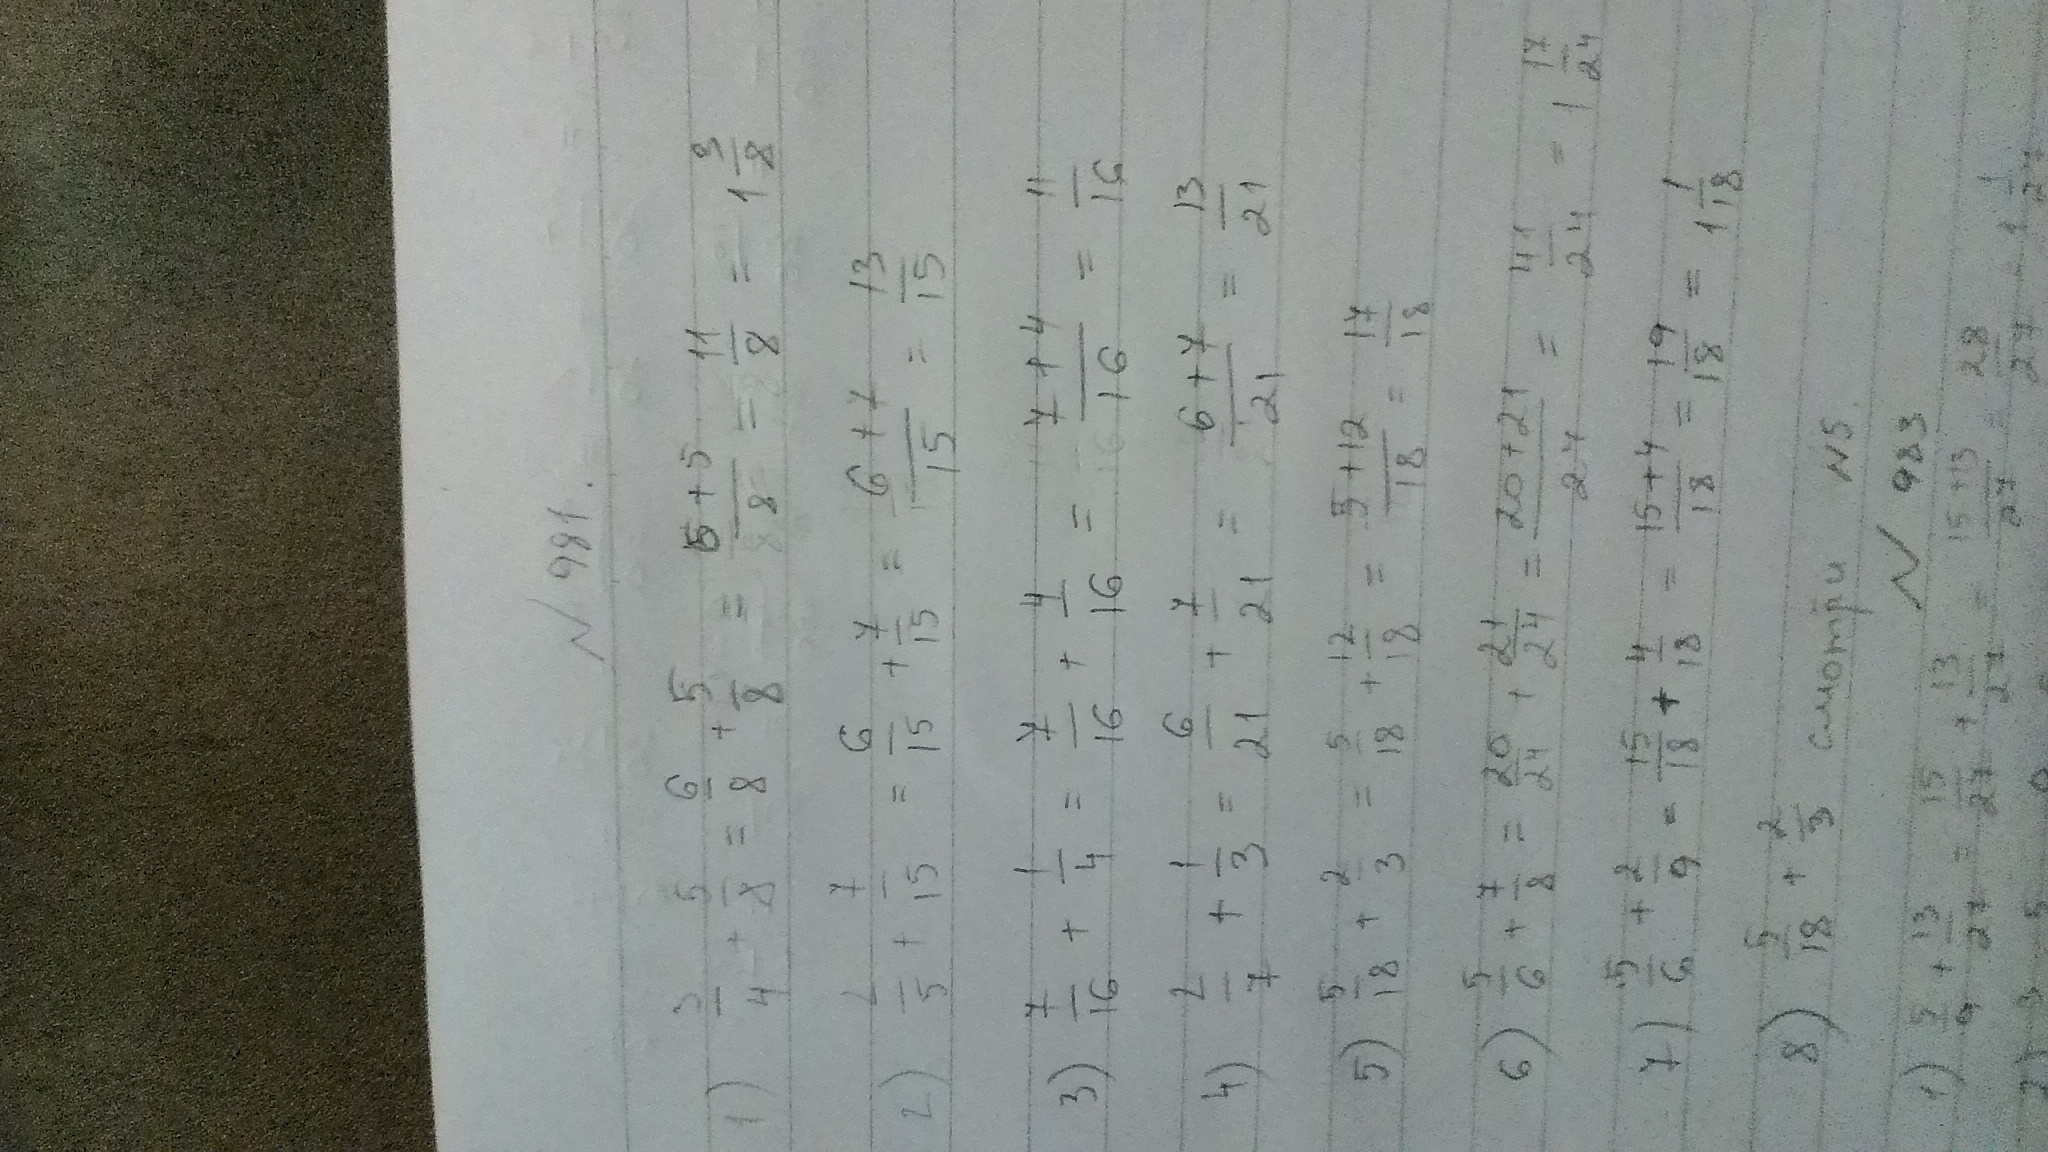 N 981.
1) 3/4 + 5/8 = 6/8 + 5/8 = 6+5/8 = 11/8 = 1 3/8
2) 2/5 + 7/15 = 6/15 + 7/15 = 6+7/15 = 13/15
3) 7/16 + 1/4 = 7/16 + 4/16 = 7+4/16 = 11/16
4) 2/7 + 1/3 = 6/21 + 7/21 = 6+7/21 = 13/21
5) 5/18 + 2/3 = 5/18 + 12/18 = 5+12/18 = 17/18
6) 5/6 + 7/8 = 20/24 + 21/24 = 20+21/24 = 41/24 = 1 17/24
7) 5/6 + 2/9 = 15/18 + 4/18 = 15+4/18 = 19/18 = 1 1/18
8) 5/18 + 2/3 смотри N5.
N 983
1) 5/9 + 13/27 = 15/27 + 13/27 = 15+13/27 = 28/27 = 1 1/27